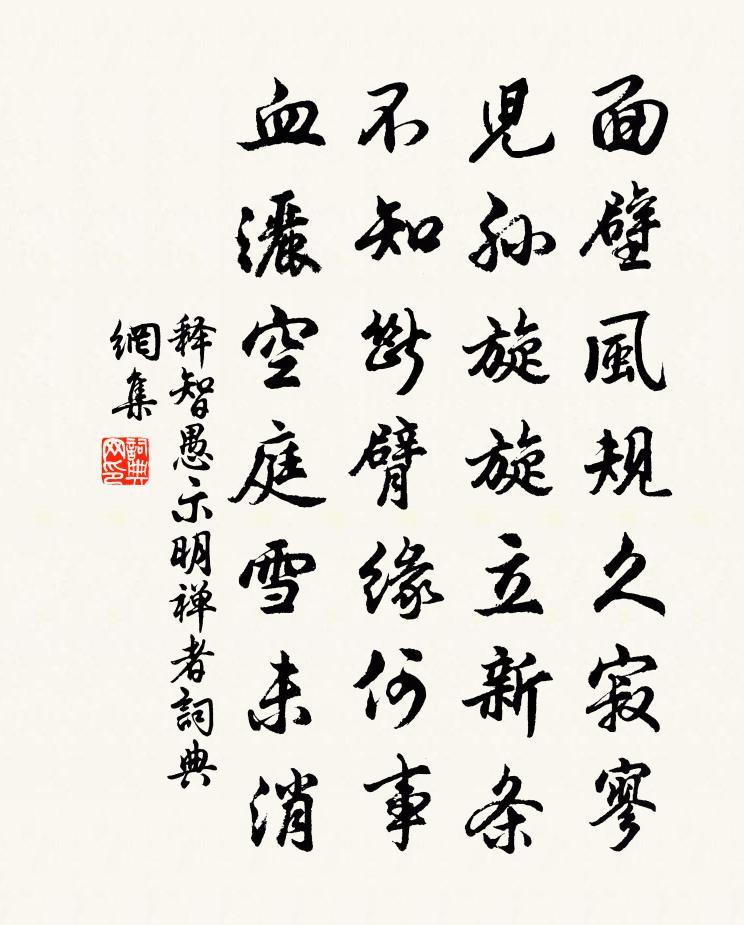 面壁風規久寂寥
児孙旋旋立新条
不知断臂緣何事
血灑空庭雪未消
释智愚示明禅者詞典
網集
詞典网印